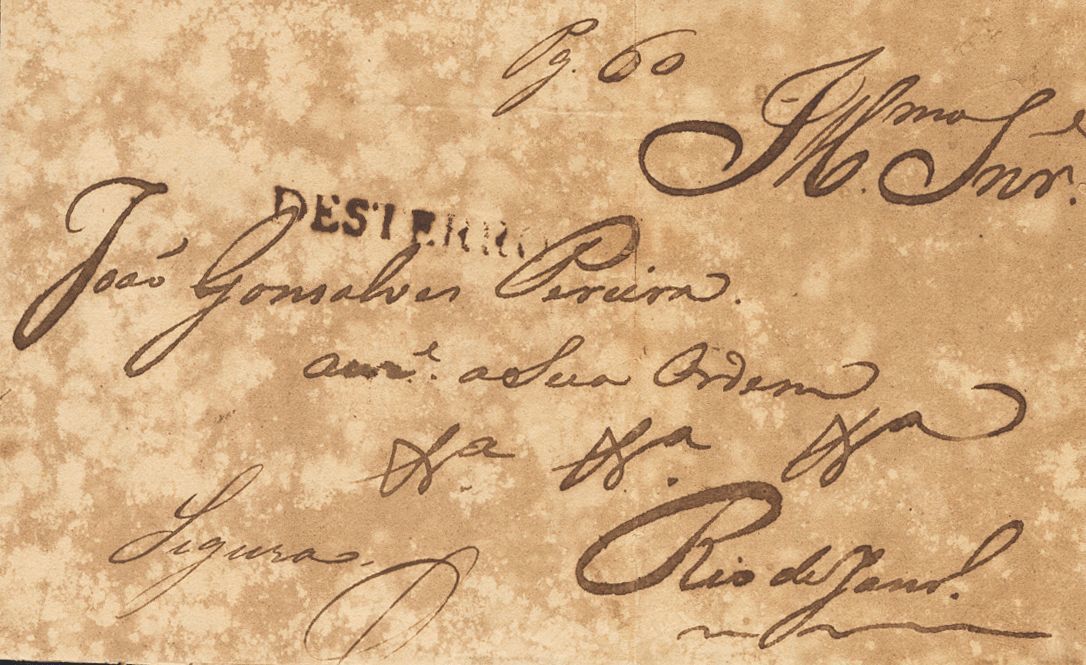 Pg. 60
Illmo Snr.
DESTERRO
João Gonsalves Pereira.
a Sua Ordem
Segura.
Rio de Janro.